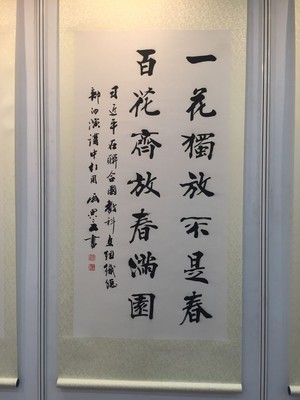 一花獨放不是春
百花齊放春滿園
習近平在聯合國教科文組織總
部的演講中引用
書